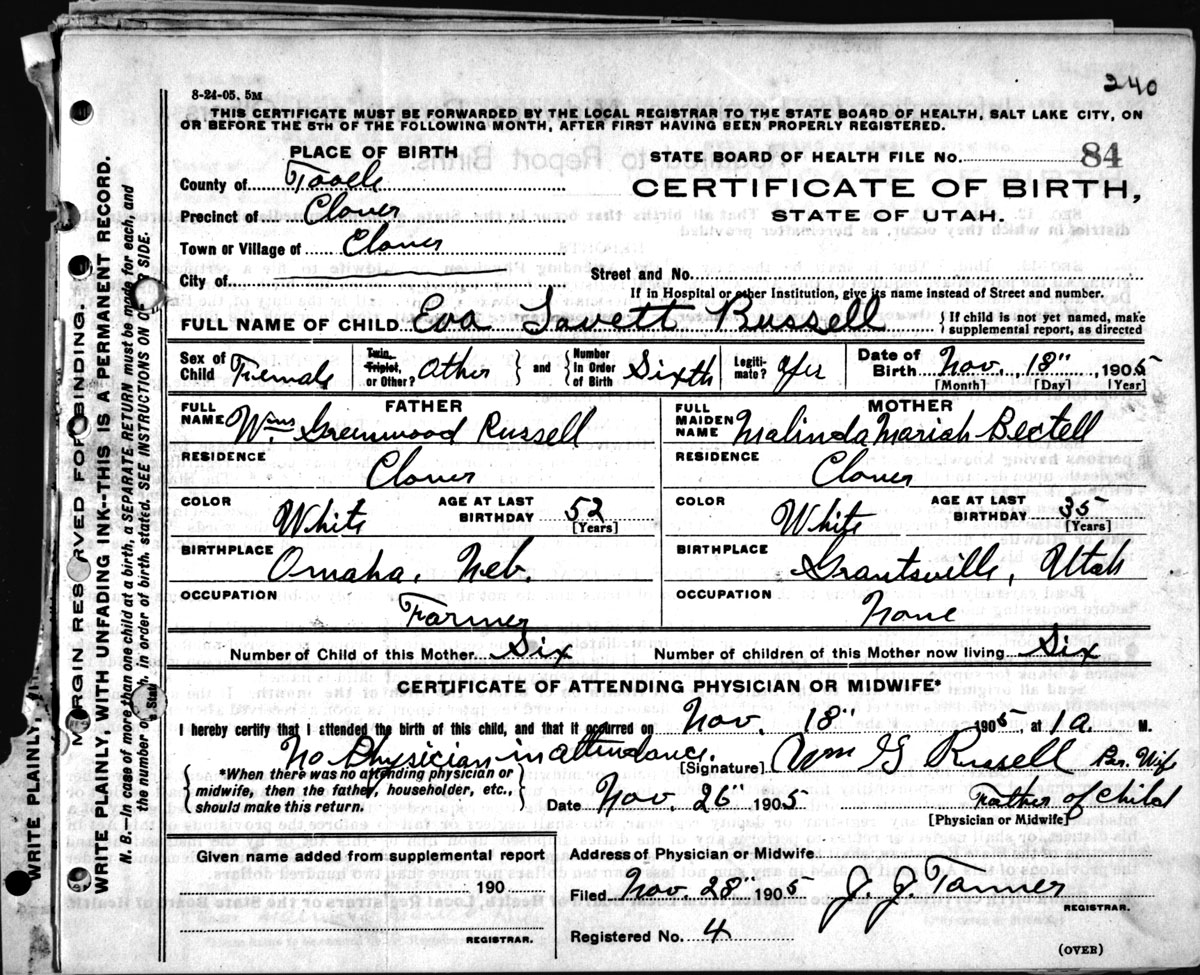 240
8-24-05, 5M
THIS CERTIFICATE MUST BE FORWARDED BY THE LOCAL REGISTRAR TO THE STATE BOARD OF HEALTH, SALT LAKE CITY, ON
OR BEFORE THE 5TH OF THE FOLLOWING MONTH, AFTER FIRST HAVING BEEN PROPERLY REGISTERED.
PLACE OF BIRTH
County of Tooele
Precinct of Clover
Town or Village of Clover
City of
STATE BOARD OF HEALTH FILE NO. 84
CERTIFICATE OF BIRTH,
STATE OF UTAH.
Street and No.
If in Hospital or other Institution, give its name instead of Street and number.
FULL NAME OF CHILD Eva Lavett Russell { If child is not yet named, make supplemental report, as directed
Sex of Child Female Twin, Triplet, or Other? Other } and { Number in Order of Birth Sixth Legiti-mate? Yes Date of Birth Nov. 18" 1905
[Month] [Day] [Year]
FATHER
FULL NAME Wm Greenwood Russell
RESIDENCE Clover
COLOR White AGE AT LAST BIRTHDAY 52 [Years]
BIRTHPLACE Omaha, Neb.
OCCUPATION Farmer
MOTHER
FULL MAIDEN NAME Malinda Mariah Bectell
RESIDENCE Clover
COLOR White AGE AT LAST BIRTHDAY 35 [Years]
BIRTHPLACE Grantsville, Utah
OCCUPATION None
Number of Child of this Mother Six Number of children of this Mother now living Six
CERTIFICATE OF ATTENDING PHYSICIAN OR MIDWIFE*
I hereby certify that I attended the birth of this child, and that it occurred on Nov. 18" 1905, at 1 a. M.
No Physician in attendance.
[Signature] Wm G Russell Per. Wife
{ *When there was no attending physician or midwife, then the father, householder, etc., should make this return. }
Date Nov. 26" 1905 Father of Child
[Physician or Midwife]
Given name added from supplemental report
190
REGISTRAR.
Address of Physician or Midwife
Filed Nov. 28" 1905 J. J. Tanner
REGISTRAR.
Registered No. 4
(OVER)
MARGIN RESERVED FOR BINDING.
WRITE PLAINLY, WITH UNFADING INK--THIS IS A PERMANENT RECORD.
N. B.—In case of more than one child at a birth, a SEPARATE RETURN must be made for each, and
the number of each, in order of birth, stated. SEE INSTRUCTIONS ON OTHER SIDE.
WRITE PLAINLY,